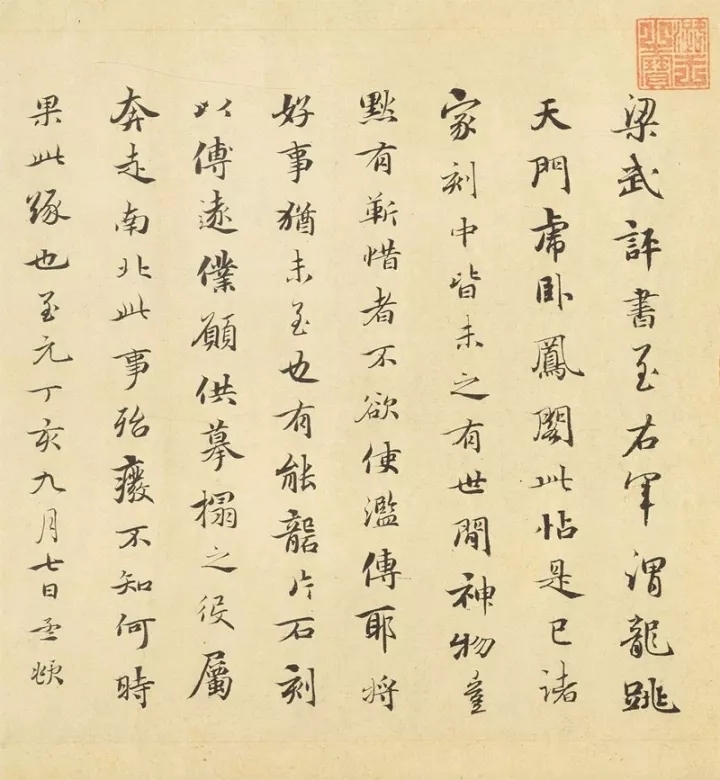 梁武評書至右軍謂龍跳
天門虎卧鳳閣此帖是已諸
家刻中皆未之有世間神物豈
默有靳惜者不欲使濫傳耶將
好事猶未至也有能礱片石刻
以傳遠僕願供摹搨之役屬
奔走南北此事殆廢不知何時
果此緣也至元丁亥九月七日孟頫